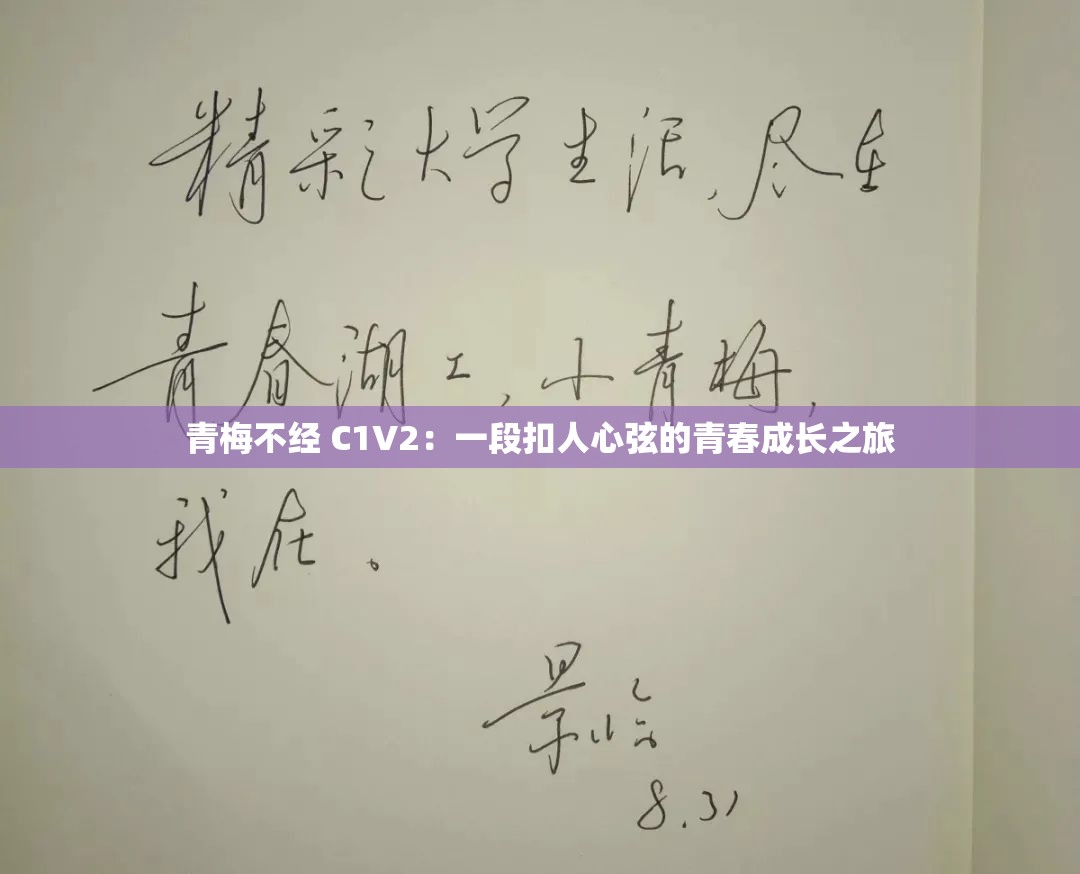 精彩大学生活，尽在
青春湖工，小青梅，
青梅不经 C1V2：一段扣人心弦的青春成长之旅
我在。
8.31